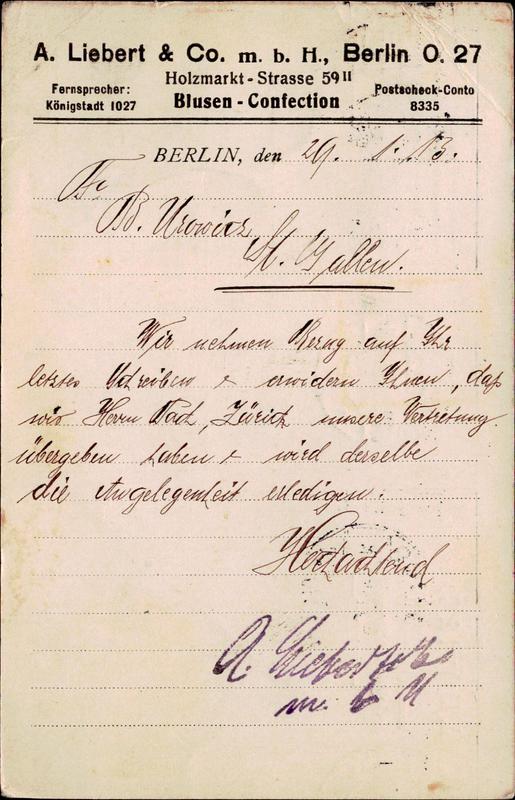 A. Liebert & Co. m. b. H., Berlin O. 27
Holzmarkt-Strasse 59 II
Fernsprecher: Königstadt 1027
Blusen-Confection
Postscheck-Conto 8335
BERLIN, den 29. 1. 13.
Fr
B. Urowicz
St. Gallen.
Wir nehmen Bezug auf Ihr
letztes Schreiben & erwidern Ihnen, daß
wir Herrn, Zürich unsere Vertretung
übergeben haben & wird derselbe
die Angelegenheit erledigen.
Hochachtend
A. Liebert & Co.
m. b. H